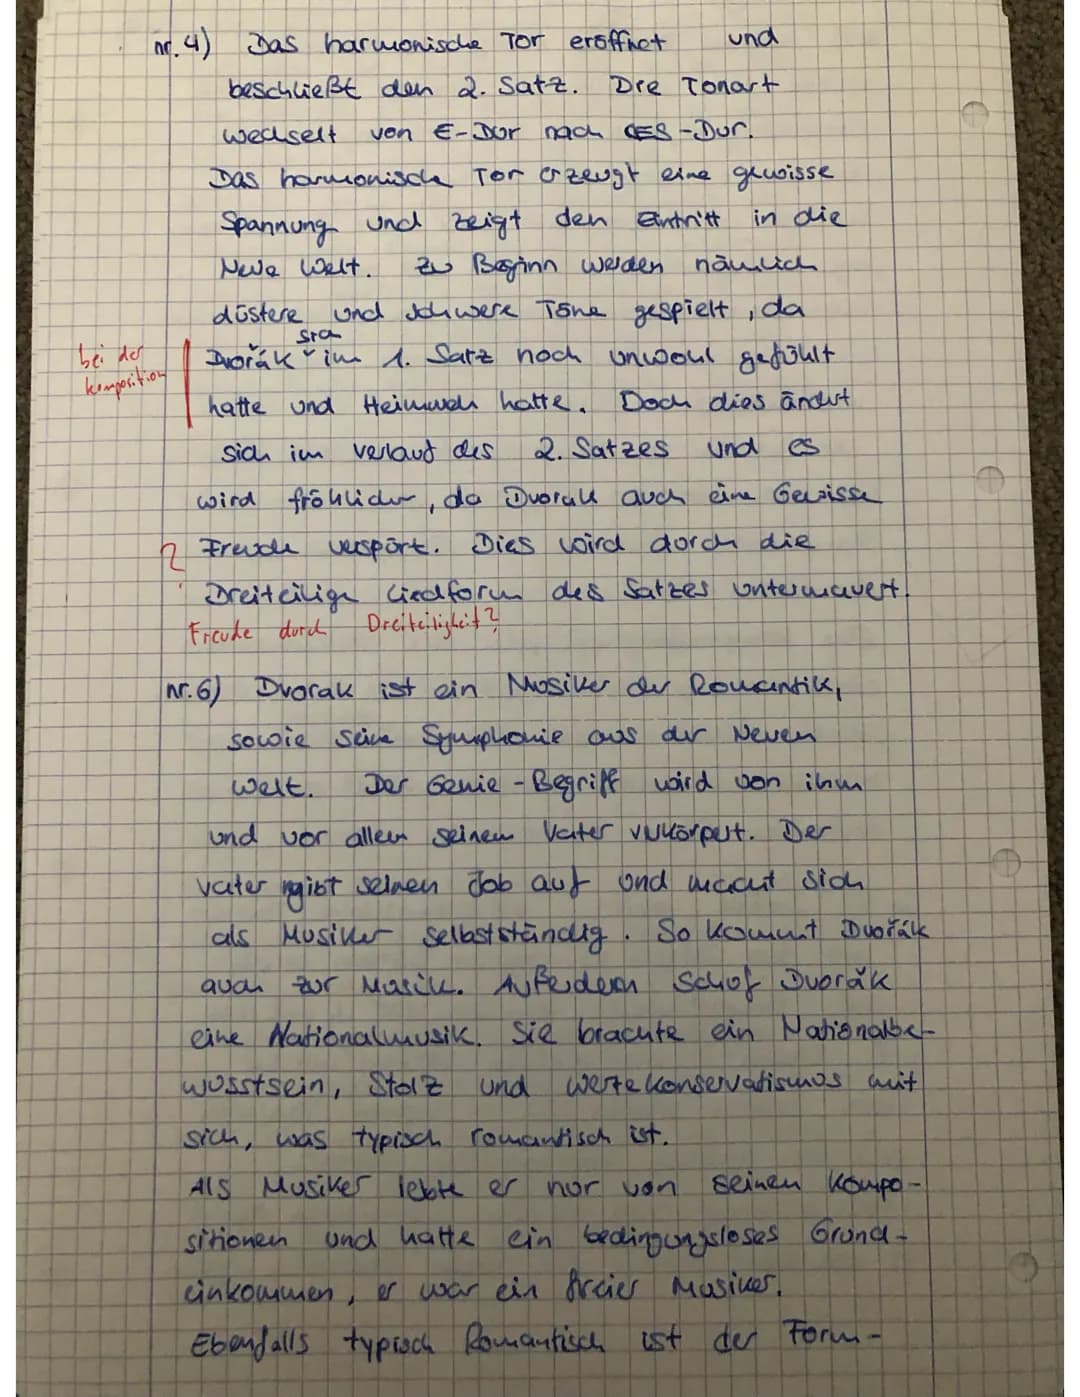 nr. 4) Das harmonische Tor eröffnet und
beschließt den 2. Satz. Die Tonart
wechselt von E-Dur nach DES-Dur.
Das harmonische Tor erzeugt eine gewisse
Spannung und zeigt den Eintritt in die
Neue Welt. Zu Beginn werden nämlich
düstere und schwere Töne gespielt, da
sich
bei der
Komposition
Dvořák im 1. Satz noch unwohl gefühlt
hatte und Heimweh hatte. Doch dies ändert
sich im verlauf des 2. Satzes und es
wird fröhlicher, da Dvorak auch eine Gewisse
? Freude verspürt. Dies wird durch die
Dreiteilige Liedform des Satzes untermauert.
Freude durch Dreiteiligkeit?
nr. 6) Dvorak ist ein Musiker der Romantik,
sowie seine Symphonie aus der Neuen
Welt. Der Genie-Begriff wird von ihm
und vor allem seinem Vater verkörpert. Der
Vater gibt seinen Job auf und macht sich
als Musiker selbstständig. So kommt Dvořák
auch zur Musik. Außerdem schuf Dvořák
eine Nationalmusik. Sie brachte ein Nationalbe-
wusstsein, Stolz und Wertekonservatismus mit
sich, was typisch romantisch ist.
Als Musiker lebte er nur von seinen Kompo-
sitionen und hatte ein bedingungsloses Grund-
einkommen, er war ein freier Musiker.
Ebenfalls typisch Romantisch ist der Form-